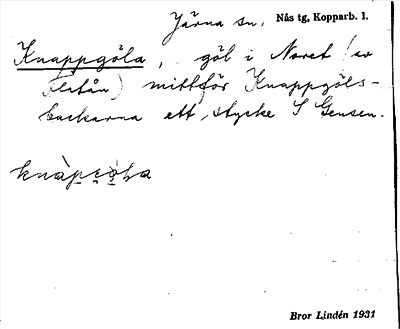 Järna sn. Nås tg, Kopparb. l.
Knappgöla, göl i Noret (av
Flatån) mittför Knappgöls-
backarna ett stycke S Gensen.
Bror Lindén 1931